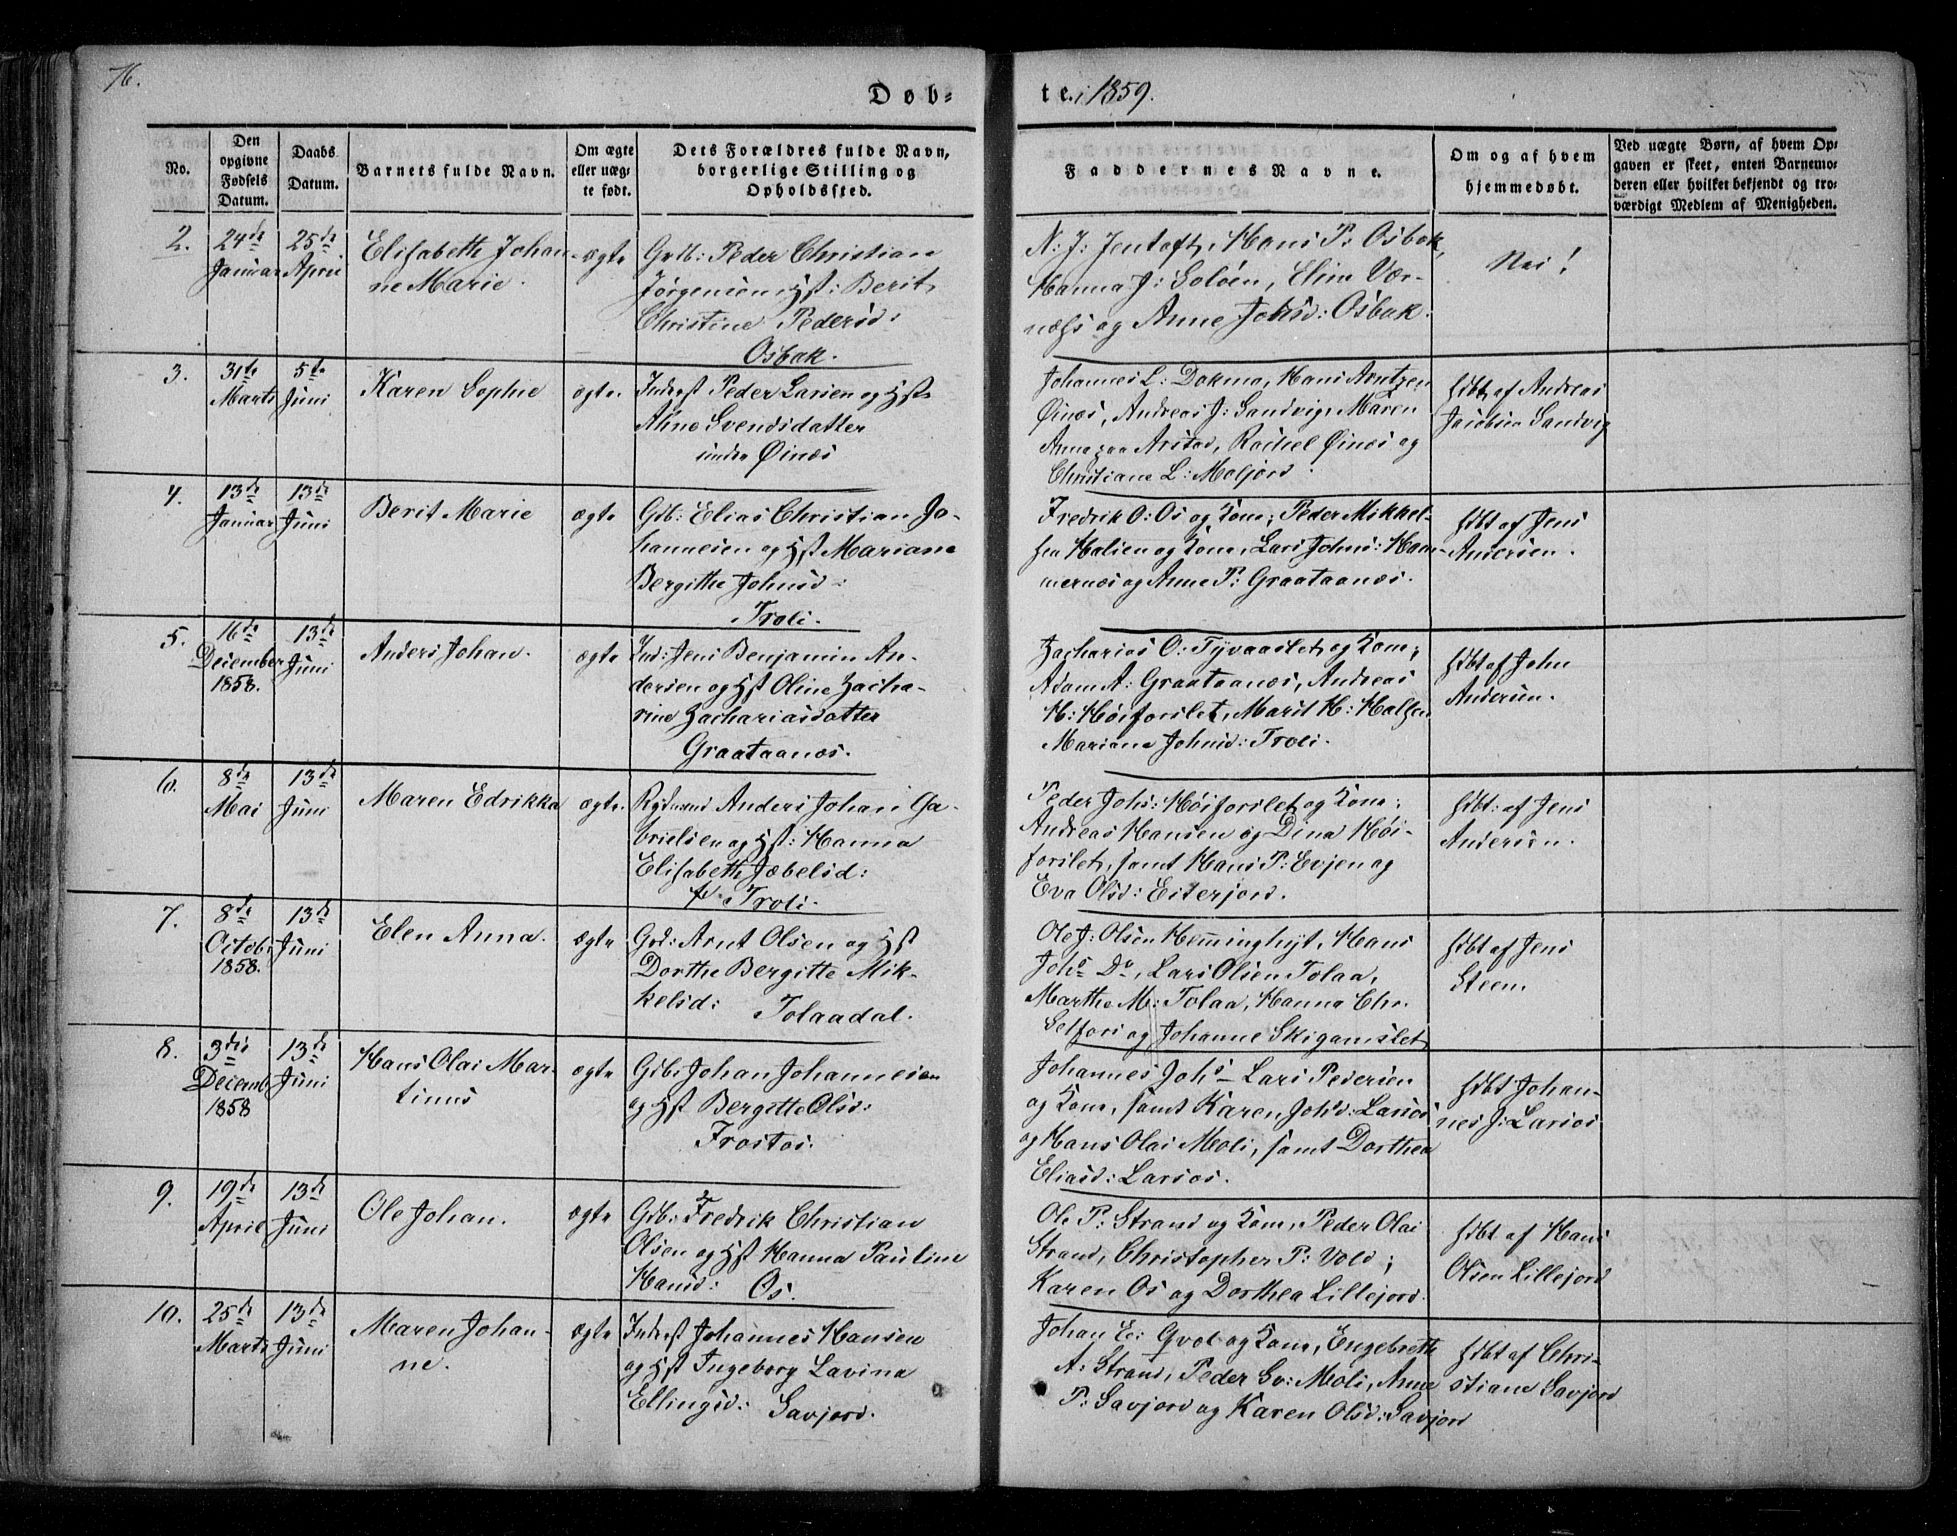 76.
Døb-
te i 1859.
No.
Den opgivne Fødsels Datum.
Daabs Datum.
Barnets fulde Navn.
Om ægte eller uægte født.
Dets Forældres fulde Navn, borgerlige Stilling og Opholdssted.
Faddernes Navne.
Om og af hvem hjemmedøbt.
Ved uægte Børn, af hvem Opgaven er skeet, enten Barnemoderen eller hvilket bekjendt og troværdigt Medlem af Menigheden.
2.
24de Januar
25de April
Elisabeth Johan
ne Marie.
ægte
Grdb: Peder Christian
Jørgensen Hst: Berit
Christine Pedersd:
Osbak.
N: J: Jentoft, Hans P: Osbak,
Hanna J: Soløen, Elen Vær-
næss og Anne Johsd: Osbak.
Nei!
3.
31te Marts
5te Juni
Karen Sophie
ægte.
Inderst Peder Larsen og Hst
Ane Svendsdatter
under Øinæs
Johannes L: Dokmo, Hans Arntzen
Øinæs, Andreas J: Sandvig, Maren
Anna paa Arstad, Rachel Øinæs og
Christiane L: Moljord.
hdbt af Andreas
Jacobsen Sandvig
4.
13de Januar
13de Juni
Berit Marie
ægte
Gdb: Elias Christian Jo-
hannesen og Hst Mariane
Bergithe Johnsd:
Troli.
Fredrik O: Os og Kone, Peder Mikkel-
sen Halsen og Kone, Lars Johns: Ham-
mernæs og Anne P: Graataanæs.
hdbt af Jens
Andersen.
5.
16de December 1858.
13de Juni
Anders Johan.
ægte
Ind: Jens Benjamin An-
dersen og Hst Oline Zacha-
rine Zachariasdatter
Graataanæs.
Zacharias O: Tyvaaslet og Kone,
Adam A: Graataanæs, Andreas
H: Høiforslet, Marit H: Halsen
Mariane Johnsd: Troli.
hdbt af John
Andersen.
6.
8de Mai
13de Juni
Maren Edrikka
ægte.
Rydmand Anders Johan Ga-
brielsen og Hst: Hanna
Elisabeth Jæbelsd:
Troli.
Peder Johs: Høiforslet og Kone,
Andreas Hansen og Dina Høi-
forslet, samt Hans P: Evjen og
Eva Olsd: Eiterjord.
hdbt: af Jens
Andersen.
7.
8de Octob: 1858.
13de Juni
Elen Anna.
ægte
Grd: Arnt Olsen og Hst
Dorthe Bergitte Mik-
kelsd: Tolaadal.
Ole J: Olsen Hemminghyt, Hans
Johs Do, Lars Olsen Tolaa,
Marthe M: Tolaa, Hanna Chr.
Selfors og Johanne Skigamslet
hdbt af Jens
Steen.
8.
3die Decemb 1858
13de Juni
Hans Olai Mar-
tinus
ægte
Gdb: Johan Johannesen
og Hst Bergitte Olsd:
Frostos.
Johannes Johs Lars Pedersen
og Kone, samt Karen Johsd: Larsos
og Hans Olai Moli, samt Dorthea
Eliasd: Larsos.
hdbt Johan-
nes J: Larsos
9.
19de April
13de Juni
Ole Johan.
ægte
Gdb: Fredrik Christian
Olsen og Hst Hanna Pauline
Hansd: Os.
Ole P: Strand og Kone, Peder Olai
Strand, Christopher P: Vold;
Karen Os og Dorthea Lillejord.
hdbt af Hans
Olsen Lillejord
10.
25de Marts
13de Juni
Maren Johan-
ne.
ægte
Inderst Johannes Hansen
og Hst Ingeborg Lavina
Ellingsd: Savjord.
Johan E: Qvæl og Kone, Engebreth
A: Strand, Peder Sv: Moli, Anne
P: Savjord og Karen Olsd: Savjord
hdbt af Chri-
stiane Savjord